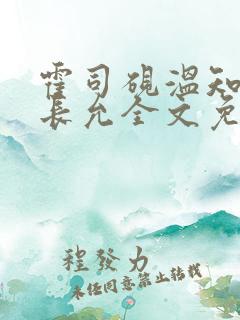 霍司砚温知
长允全文免
程发力
未经同意禁止转载